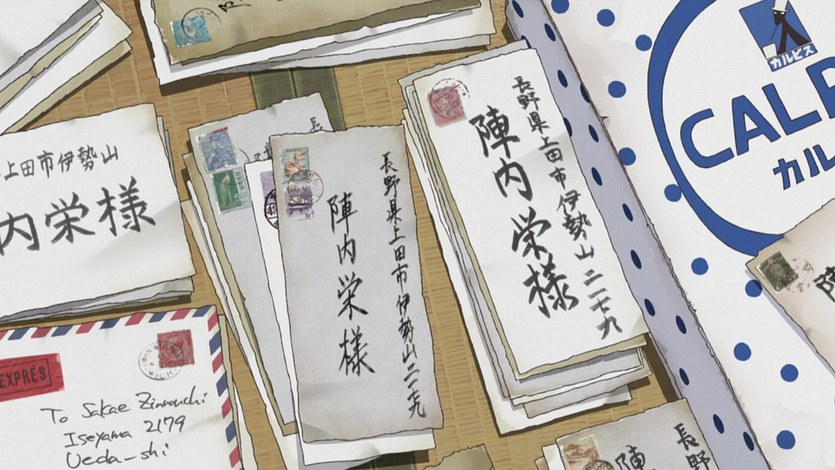 上田市伊勢山
内栄様
EXPRÈS
To Sakae Zinnouchi
Iseyama 2179
Ueda-shi
長野県上田市伊勢山二一七九
陣内栄様
長野県上田市伊勢山二一七九
陣内栄様
カルピス
CALP
カル
陣
長野
陣